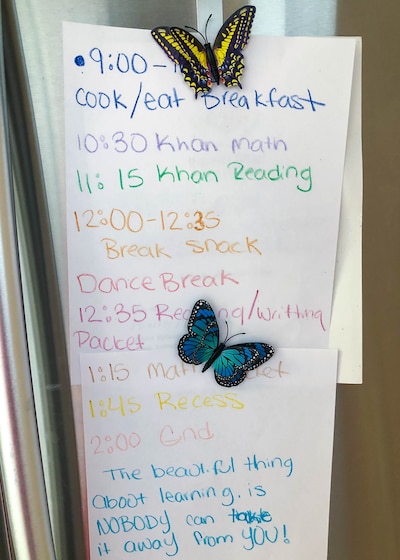 •9:00-
Cook/eat Breakfast
10:30 Khan Math
11:15 Khan Reading
12:00-12:35
Break snack
Dance Break
12:35 Reading/writting
Packet
1:15 Math
1:45 Recess
2:00 End
The beautiful thing
about learning. is
NOBODY can take
it away from YOU!